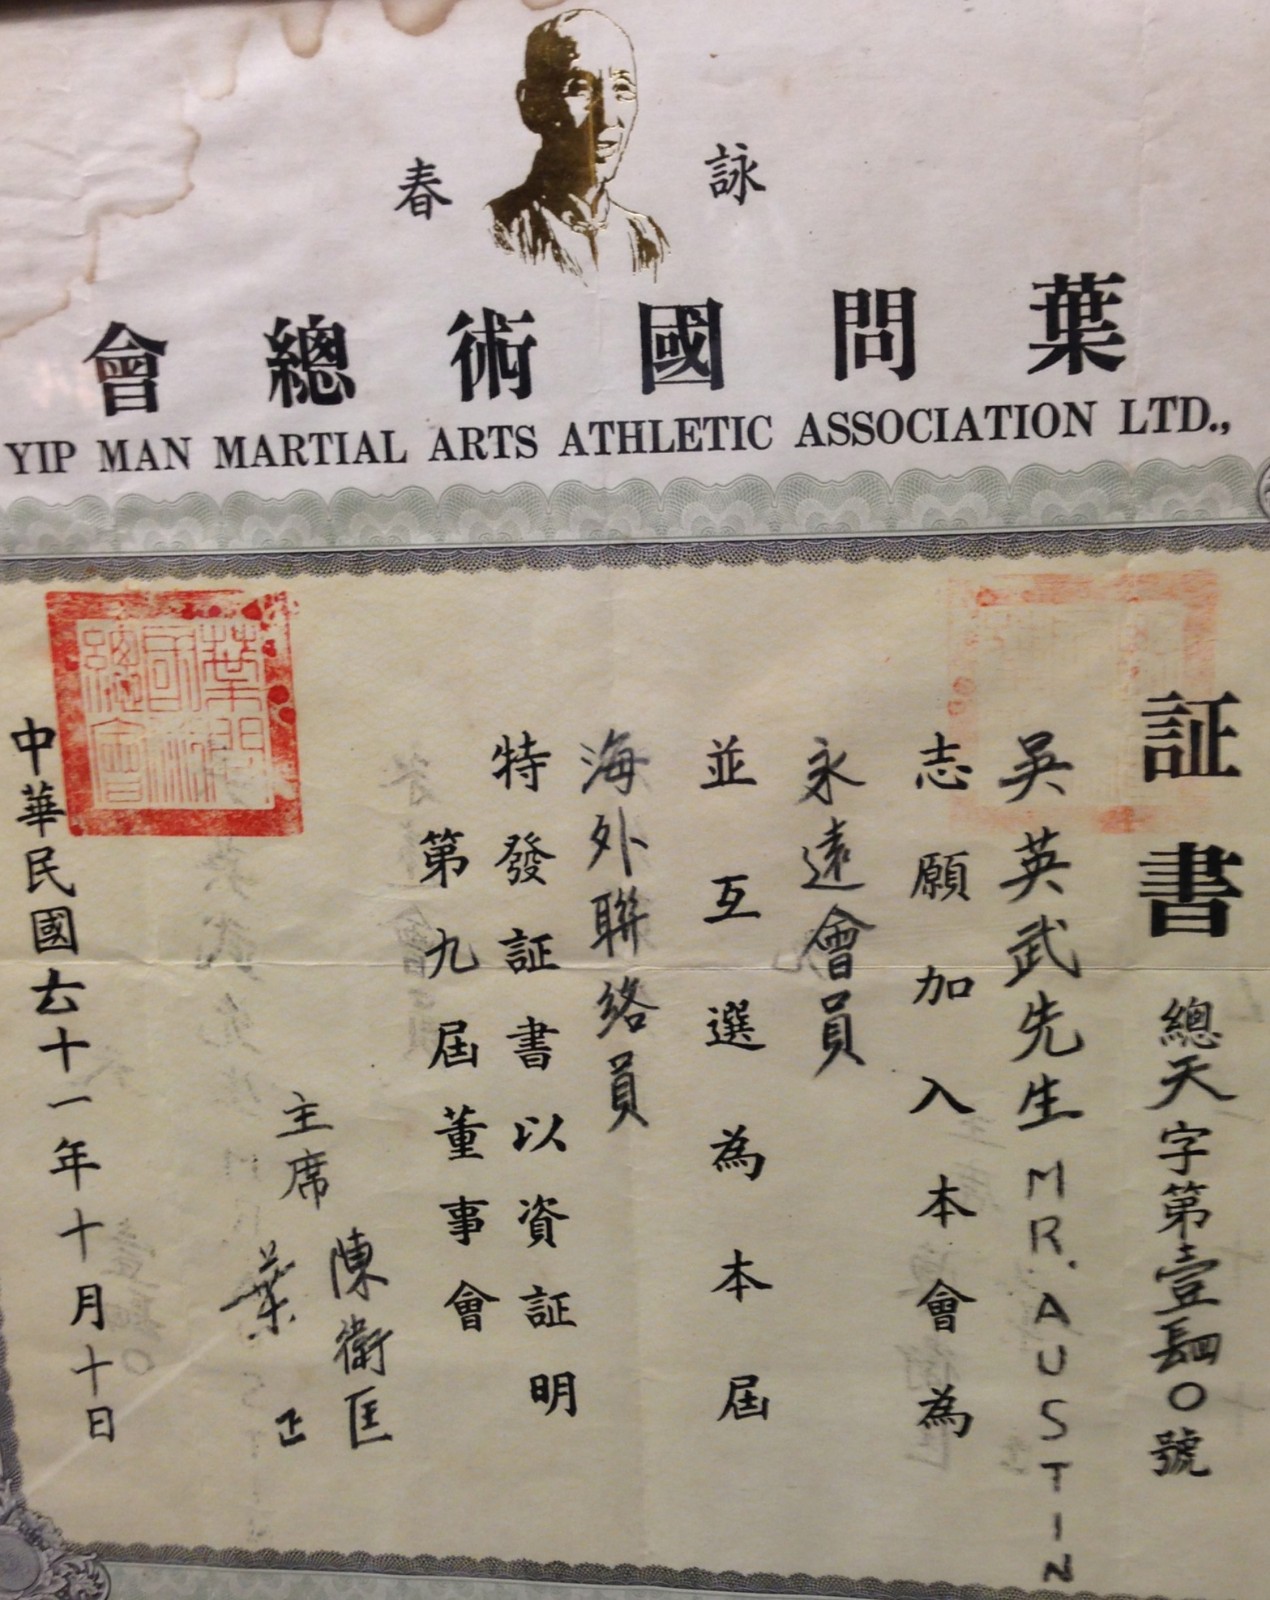 詠春
葉問國術總會
YIP MAN MARTIAL ARTS ATHLETIC ASSOCIATION LTD.,
証書
總天字第壹肆〇號
吳英武先生 MR. AUSTIN
志願加入本會為
永遠會員
並互選為本屆
海外聯絡員
特發証書以資証明
第九屆董事會
主席
陳衛匡
葉正
中華民國六十一年十月十日
葉問國術總會